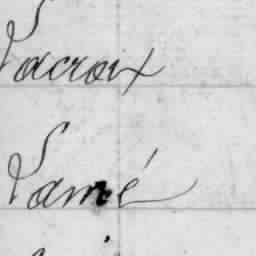 Lacroix
Lamé